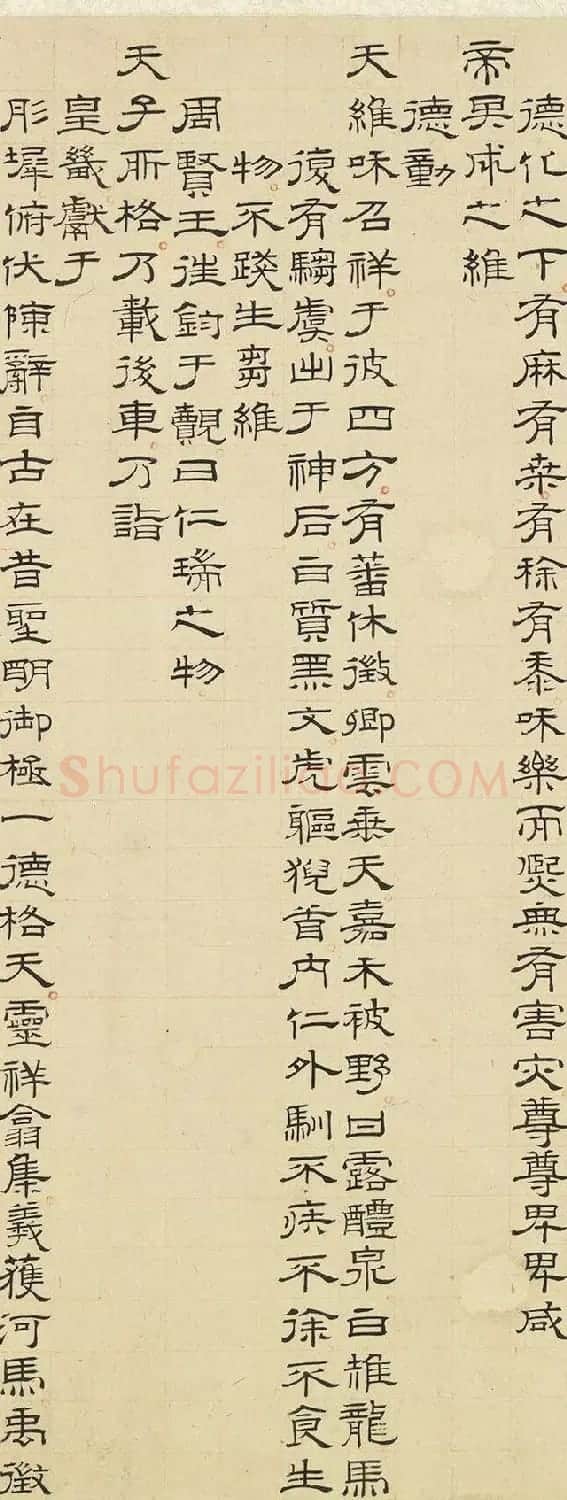 德化之下有麻有桒有稌有黍咊樂而熙無有害灾尊尊卑卑咸
帝成之維
德動
天維咊召祥于彼四方有蕃休徵卿雲垂天嘉禾被野甘露醴泉白雉龍馬
復有騶虞出于神后白質黑文虎軀猊首内仁外馴不疾不徐不食生
物不踐生芻維
周賢王徃鈞于覿曰仁瑞之物
天子所格乃載後車乃詣
皇畿獻于
彤墀俯伏陳辭自古在昔聖明御極一德格天靈祥翕集羲獲河馬禹徵
Shufaziliao.COM